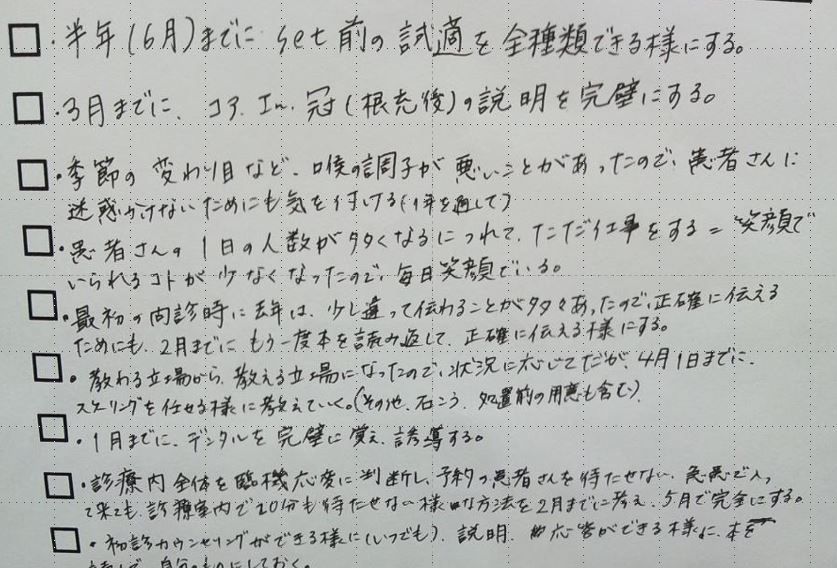 ・半年(6月)までに set前の試適を全種類できる様にする。
・3月までに、コア.In.冠(根充後)の説明を完璧にする。
・季節の変わり目など、喉の調子が悪いことがあったので、患者さんに
迷惑かけないためにも気を付ける(1年を通して)
・患者さんの1日の人数が多くなるにつれて、ただ仕事をする="笑顔で
いられるコトが少なくなったので、毎日笑顔でいる。
・最初の問診時に去年は、少し違って伝わることが多々あったので、正確に伝える
ためにも、2月までにもう一度本を読み返して、正確に伝える様にする。
・教わる立場から、教える立場になったので、状況に応じてだが、4月1日までに、
スケーリングを任せる様に教えていく。(その他、石こう、処置前の用意も含む)
・1月までに、デンタルを完璧に覚え、誘導する。
・診療内全体を臨機応変に判断し、予約の患者さんを待たせない、急患で入っ
て来ても、診療室内で20分も待たせない様な方法を2月までに考え、5月で完全にする。
・初診カウンセリングができる様に(いつでも)、説明、応答ができる様に、本を
読んで、自分のものにしておく。